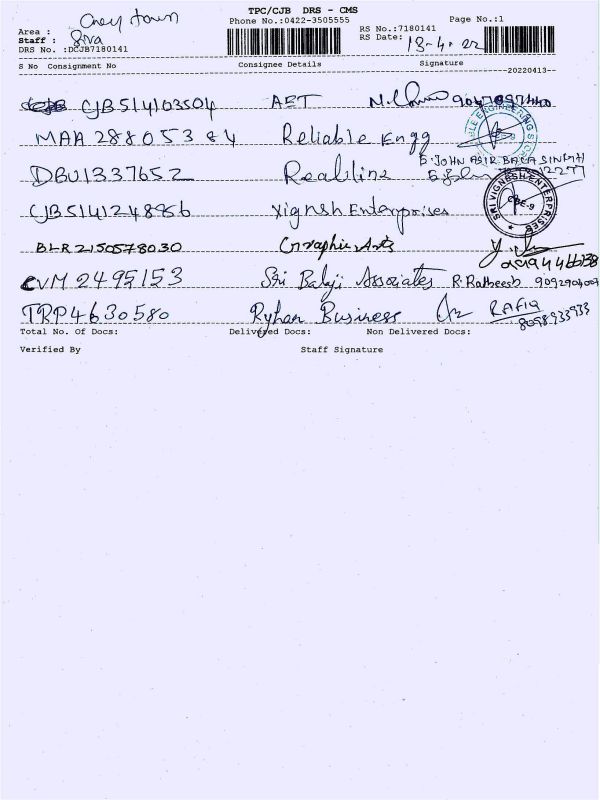 TPC/CJB DRS - CMS
Phone No.:0422-3505555
Page No.:1
Area :
Staff : Siva
DRS No. :DCJB7180141
RS No.:7180141
RS Date: 13-4-22
S No Consignment No Consignee Details Signature
20220413
CJB514103504 AET
MAA 288053 84 Reliable Engg
DBU1337652 Realline
E. JOHN ASIR BALA SINGH
CJB514124886 Vignesh Enterprises
SRI VIGNESH ENTERPRISES
CBE-9
BLR2150578030 Graphic Arts
CVM 2495153 Sri Balaji Associates R. Ratheesh
TRP4630580 Ryhan Business RAFIQ
8098933933
Total No. Of Docs: Delivered Docs: Non Delivered Docs:
Verified By Staff Signature